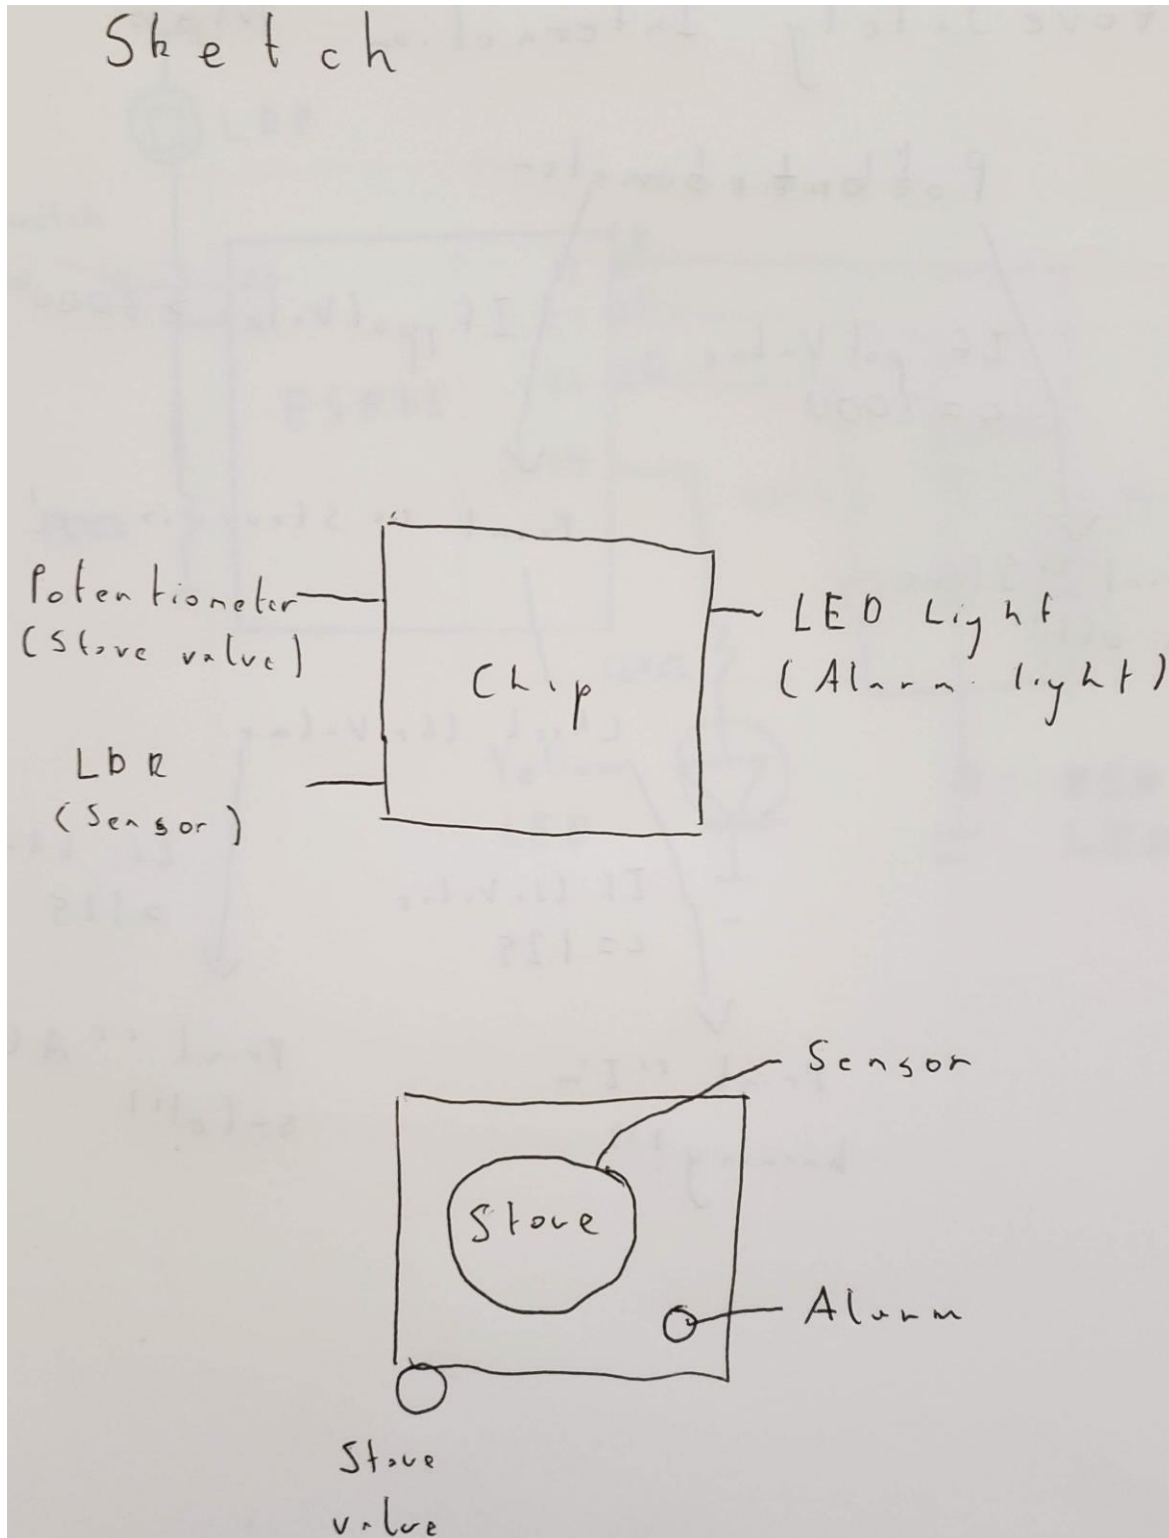 Sketch
Potentiometer
(Stove value)
LDR
(Sensor)
Chip
LED Light
(Alarm light)
Sensor
Stove
Alarm
Stove
value